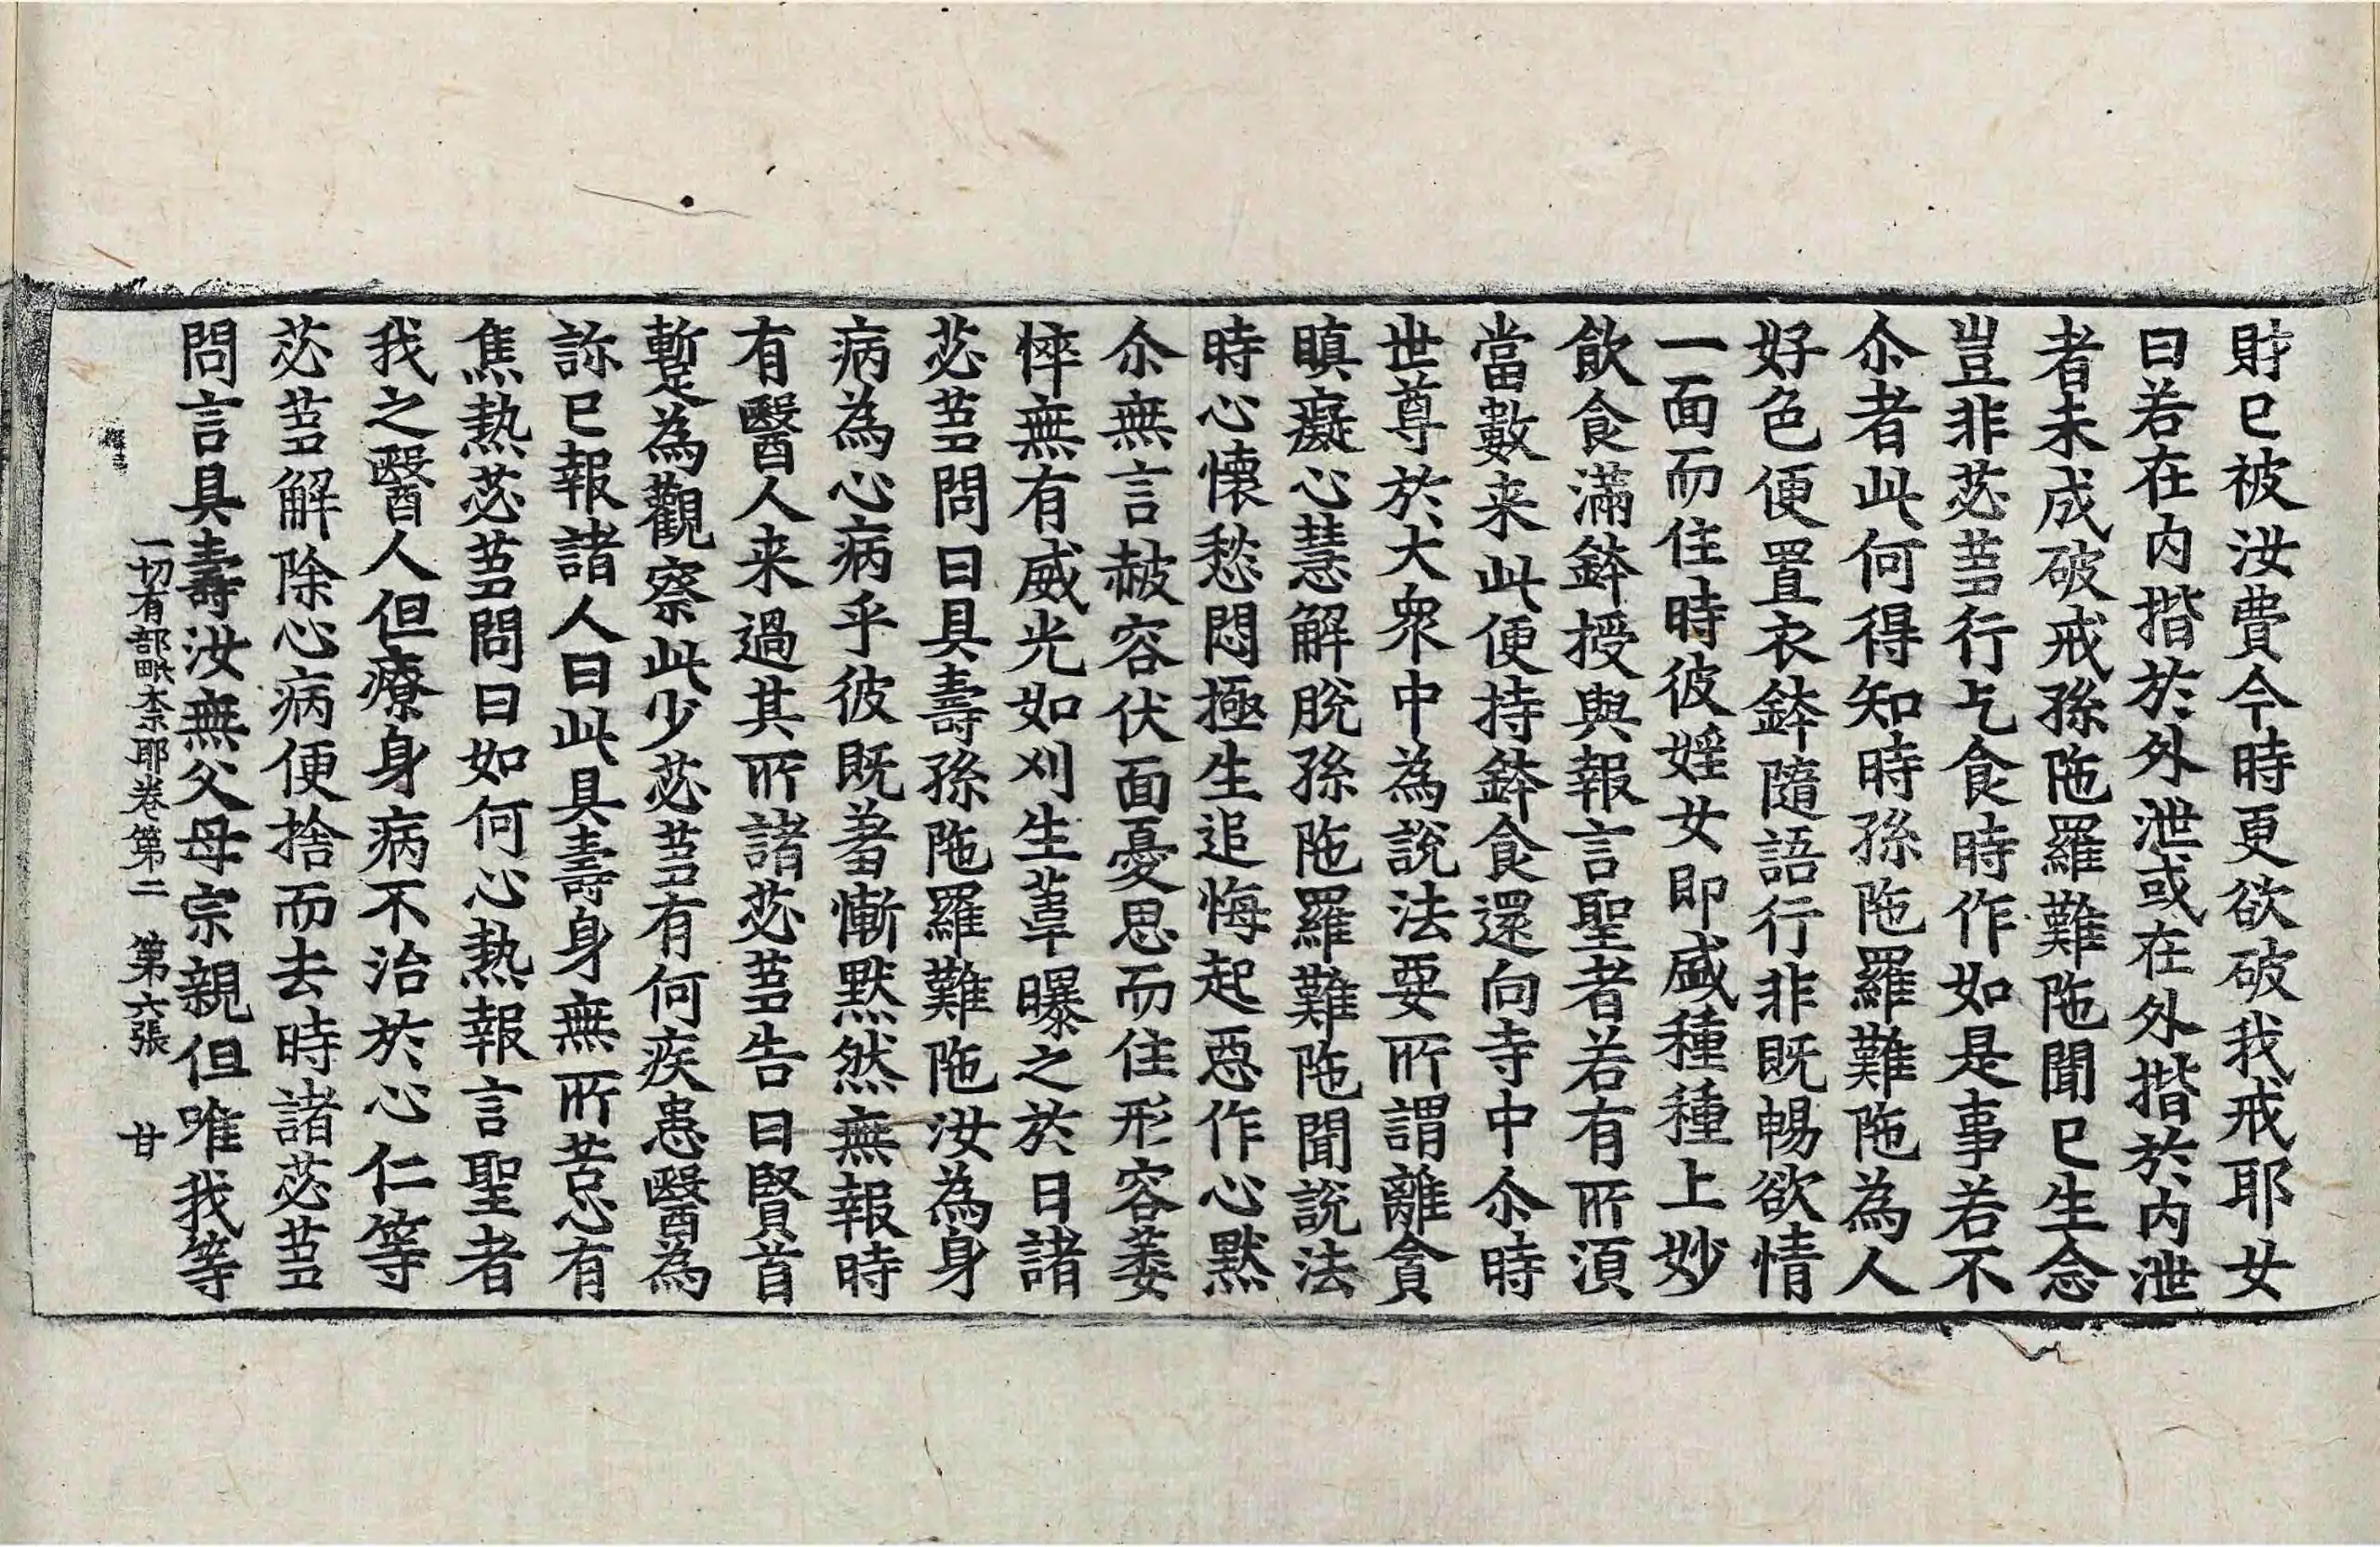 財已被汝費今時更欲破我戒耶女
曰若在内揩於外泄或在外揩於内泄
者未成破戒孫陁羅難陁聞已生念
豈非苾蒭行乞食時作如是事若不
尒者此何得知時孫陁羅難陁為人
好色便置衣鉢隨語行非既暢欲情
一面而住時彼婬女即盛種種上妙
飲食滿鉢授與報言聖者若有所湏
當數来此便持鉢食還向寺中尒時
世尊於大衆中為說法要所謂離貪
瞋癡心慧解脫孫陁羅難陁聞說法
時心懷愁悶極生追悔起惡作心默
尒無言赧容伏面憂思而住形容萎
悴無有威光如刈生葦曝之於日諸
苾蒭問曰具壽孫陁羅難陁汝為身
病為心病乎彼既羞慚默然無報時
有醫人来過其所諸苾蒭告曰賢首
暫為觀察此少苾蒭有何疾患醫為
診已報諸人曰此具壽身無所苦心有
焦熱苾蒭問曰如何心熱報言聖者
我之醫人但療身病不治於心仁等
苾蒭解除心病便捨而去時諸苾蒭
問言具壽汝無父母宗親但唯我等
一切有部毗奈耶卷第二 第六張 甘